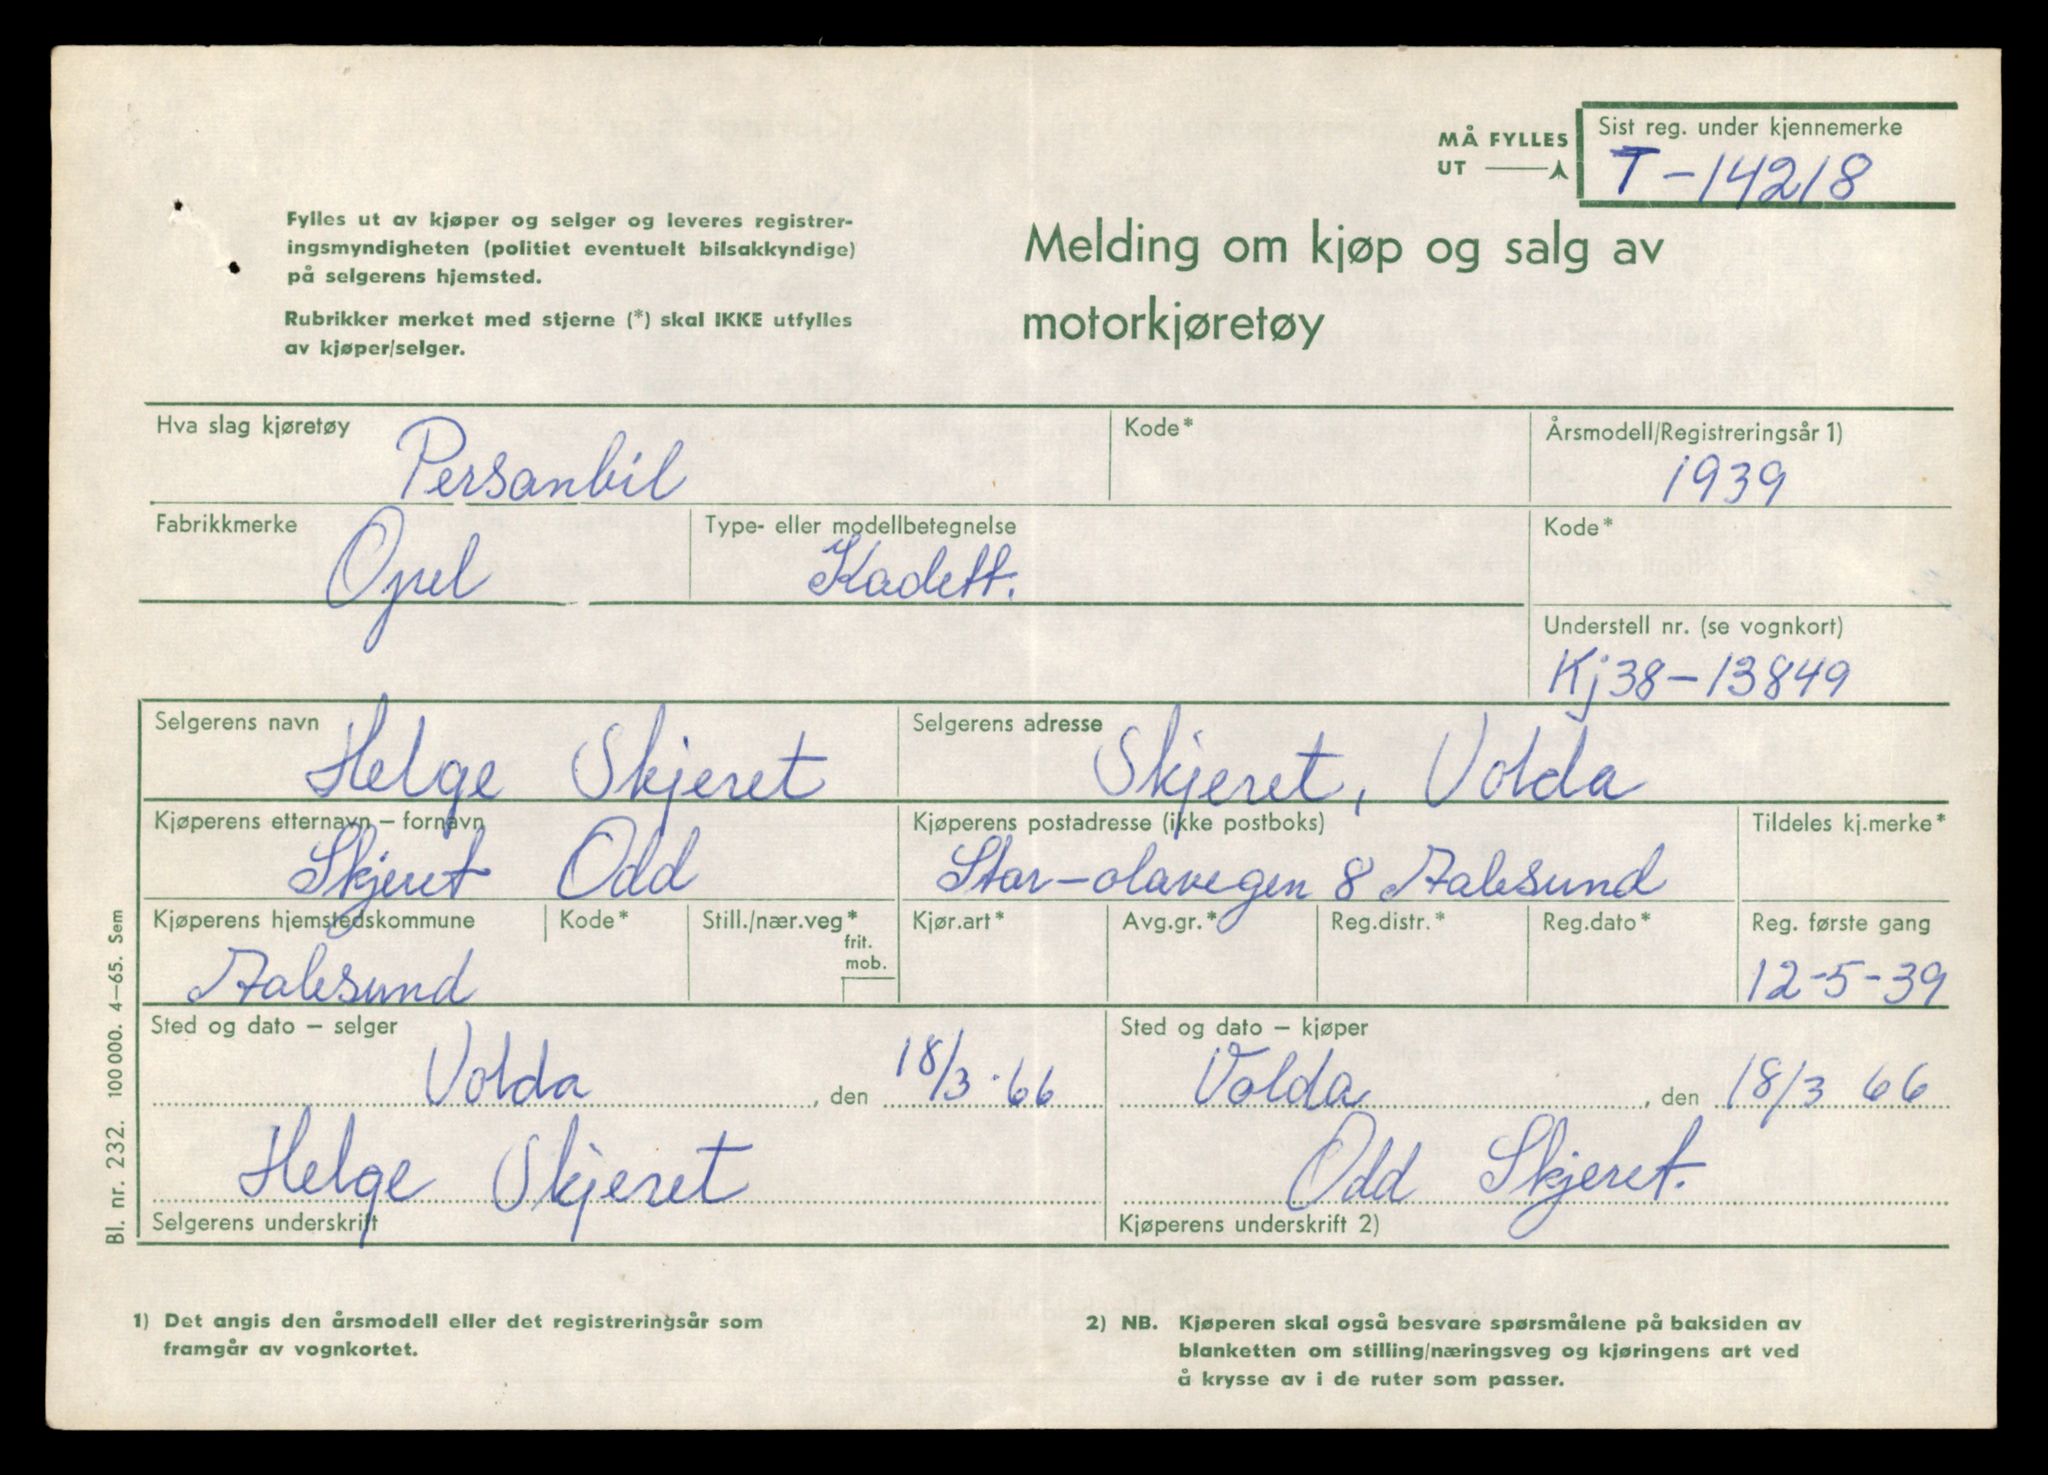 MÅ FYLLES UT
Sist reg. under kjennemerke
T-14218
Fylles ut av kjøper og selger og leveres registrer-
ingsmyndigheten (politiet eventuelt bilsakkyndige)
på selgerens hjemsted.
Rubrikker merket med stjerne (*) skal IKKE utfylles
av kjøper/selger.
Melding om kjøp og salg av
motorkjøretøy
Hva slag kjøretøy
Persanbil
Kode*
Årsmodell/Registreringsår 1)
1939
Fabrikkmerke
Opel
Type- eller modellbetegnelse
Kadett.
Kode*
Understell nr. (se vognkort)
Kj38-13849
Selgerens navn
Helge Skjeret
Selgerens adresse
Skjeret, Volda
Kjøperens etternavn – fornavn
Skjeret Odd
Kjøperens postadresse (ikke postboks)
Stor-olavegen 8 Aalesund
Tildeles kj.merke*
Kjøperens hjemstedskommune
Aalesund
Kode*
Still./nær.veg*
frit.
mob.
Kjør.art*
Avg.gr.*
Reg.distr.*
Reg.dato*
Reg. første gang
12-5-39
Sted og dato – selger
Volda, den 18/3.66
Helge Skjeret
Selgerens underskrift
Sted og dato – kjøper
Volda, den 18/3 66
Odd Skjeret.
Kjøperens underskrift 2)
Bl. nr. 232. 100 000. 4–65. Sem
1) Det angis den årsmodell eller det registreringsår som
framgår av vognkortet.
2) NB. Kjøperen skal også besvare spørsmålene på baksiden av
blanketten om stilling/næringsveg og kjøringens art ved
å krysse av i de ruter som passer.